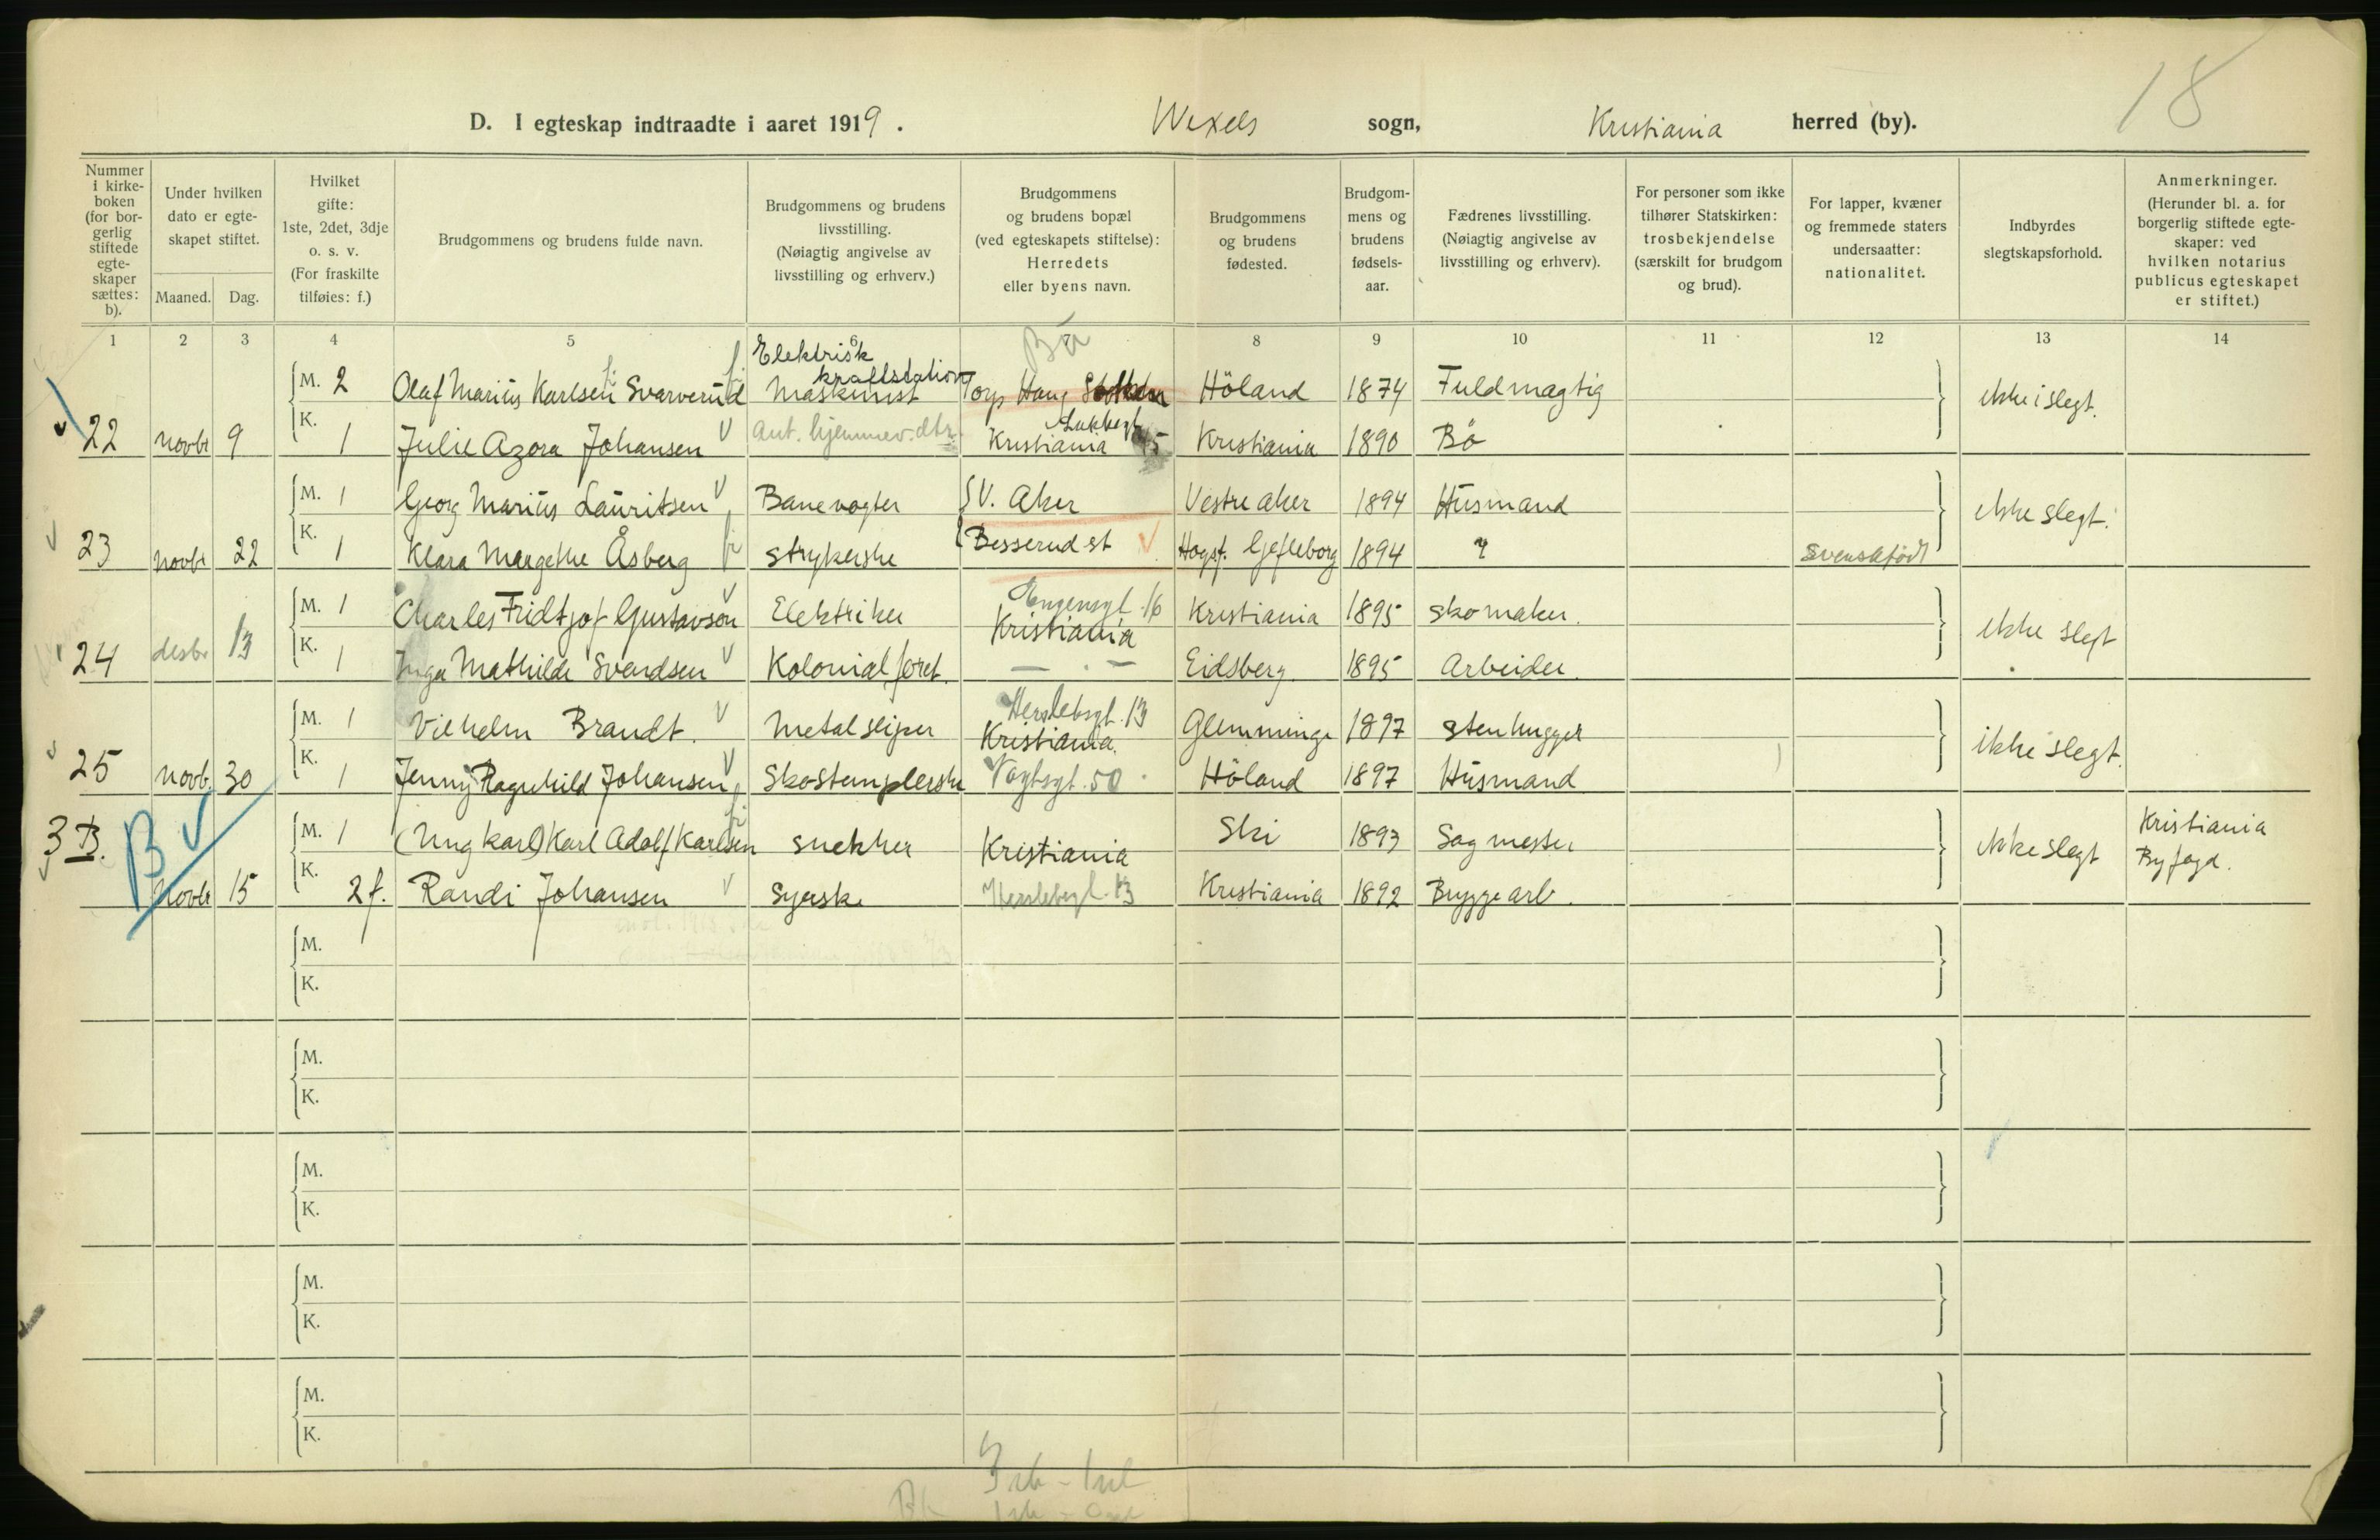 18
D. I egteskap indtraadte i aaret 1919. Wexels sogn, Kristiania herred (by).
Nummer i kirkeboken (for borgerlig stiftede egteskaper sættes: b).
Under hvilken dato er egteskapet stiftet.
Maaned. Dag.
Hvilket gifte: 1ste, 2det, 3dje o. s. v. (For fraskilte tilføies: f.)
Brudgommens og brudens fulde navn.
Brudgommens og brudens livsstilling. (Nøiagtig angivelse av livsstilling og erhverv.)
Brudgommens og brudens bopæl (ved egteskapets stiftelse): Herredets eller byens navn.
Brudgommens og brudens fødested.
Brudgommens og brudens fødselsaar.
Fædrenes livsstilling. (Nøiagtig angivelse av livsstilling og erhverv).
For personer som ikke tilhører Statskirken: trosbekjendelse (særskilt for brudgom og brud).
For lapper, kvæner og fremmede staters undersaatter: nationalitet.
Indbyrdes slegtskapsforhold.
Anmerkninger. (Herunder bl. a. for borgerlig stiftede egteskaper: ved hvilken notarius publicus egteskapet er stiftet.)
1 2 3 4 5 6 8 9 10 11 12 13 14
Elektrisk
kraftstation
M. 2 Olaf Marius Karlsen Svarverud Maskinist Torp Haug Høland 1874 Fuldmægtig ikke i slegt.
22 novbr 9 K. 1 Julie Azora Johansen Ant. hjemmev. dtr. Kristiania 45 Kristiania 1890 Bø
M. 1 Georg Marius Lauritsen Banevogter V. Aker Vestre aker 1894 Husmand ikke slegt.
23 novbr 22 K. 1 Klara Margethe Åsberg strykerske Besserud st Hogsf. Gefleborg 1894 svenskfødt
Engensgt. 16
M. 1 Charles Fridtjof Gustavson Elektriker Kristiania Kristiania 1895 skomaker. ikke slegt
24 desbr 13 K. 1 Inga Mathilde Svendsen Kolonialforet. — " — Eidsberg 1895 Arbeider.
Herslebsgt. 13
M. 1 Vilhelm Brandt. Metalsliper Kristiania. Glemminge 1897 stenhugger ikke slegt.
25 novb. 30 K. 1 Jenny Ragnhild Johansen Skostemplerske Vogtsgt. 50 Høland 1897 Husmand
3 B. B M. 1 (Ungkarl) Karl Adolf Karlsen snekker Kristiania Ski 1893 Sagmester ikke slegt Kristiania Byfogd.
novbr 15 K. 2 f. Randi Johansen Syerske Herslebsgt. 13 Kristiania 1892 Bryggearb.
M.
K.
M.
K.
M.
K.
M.
K.
M.
K.